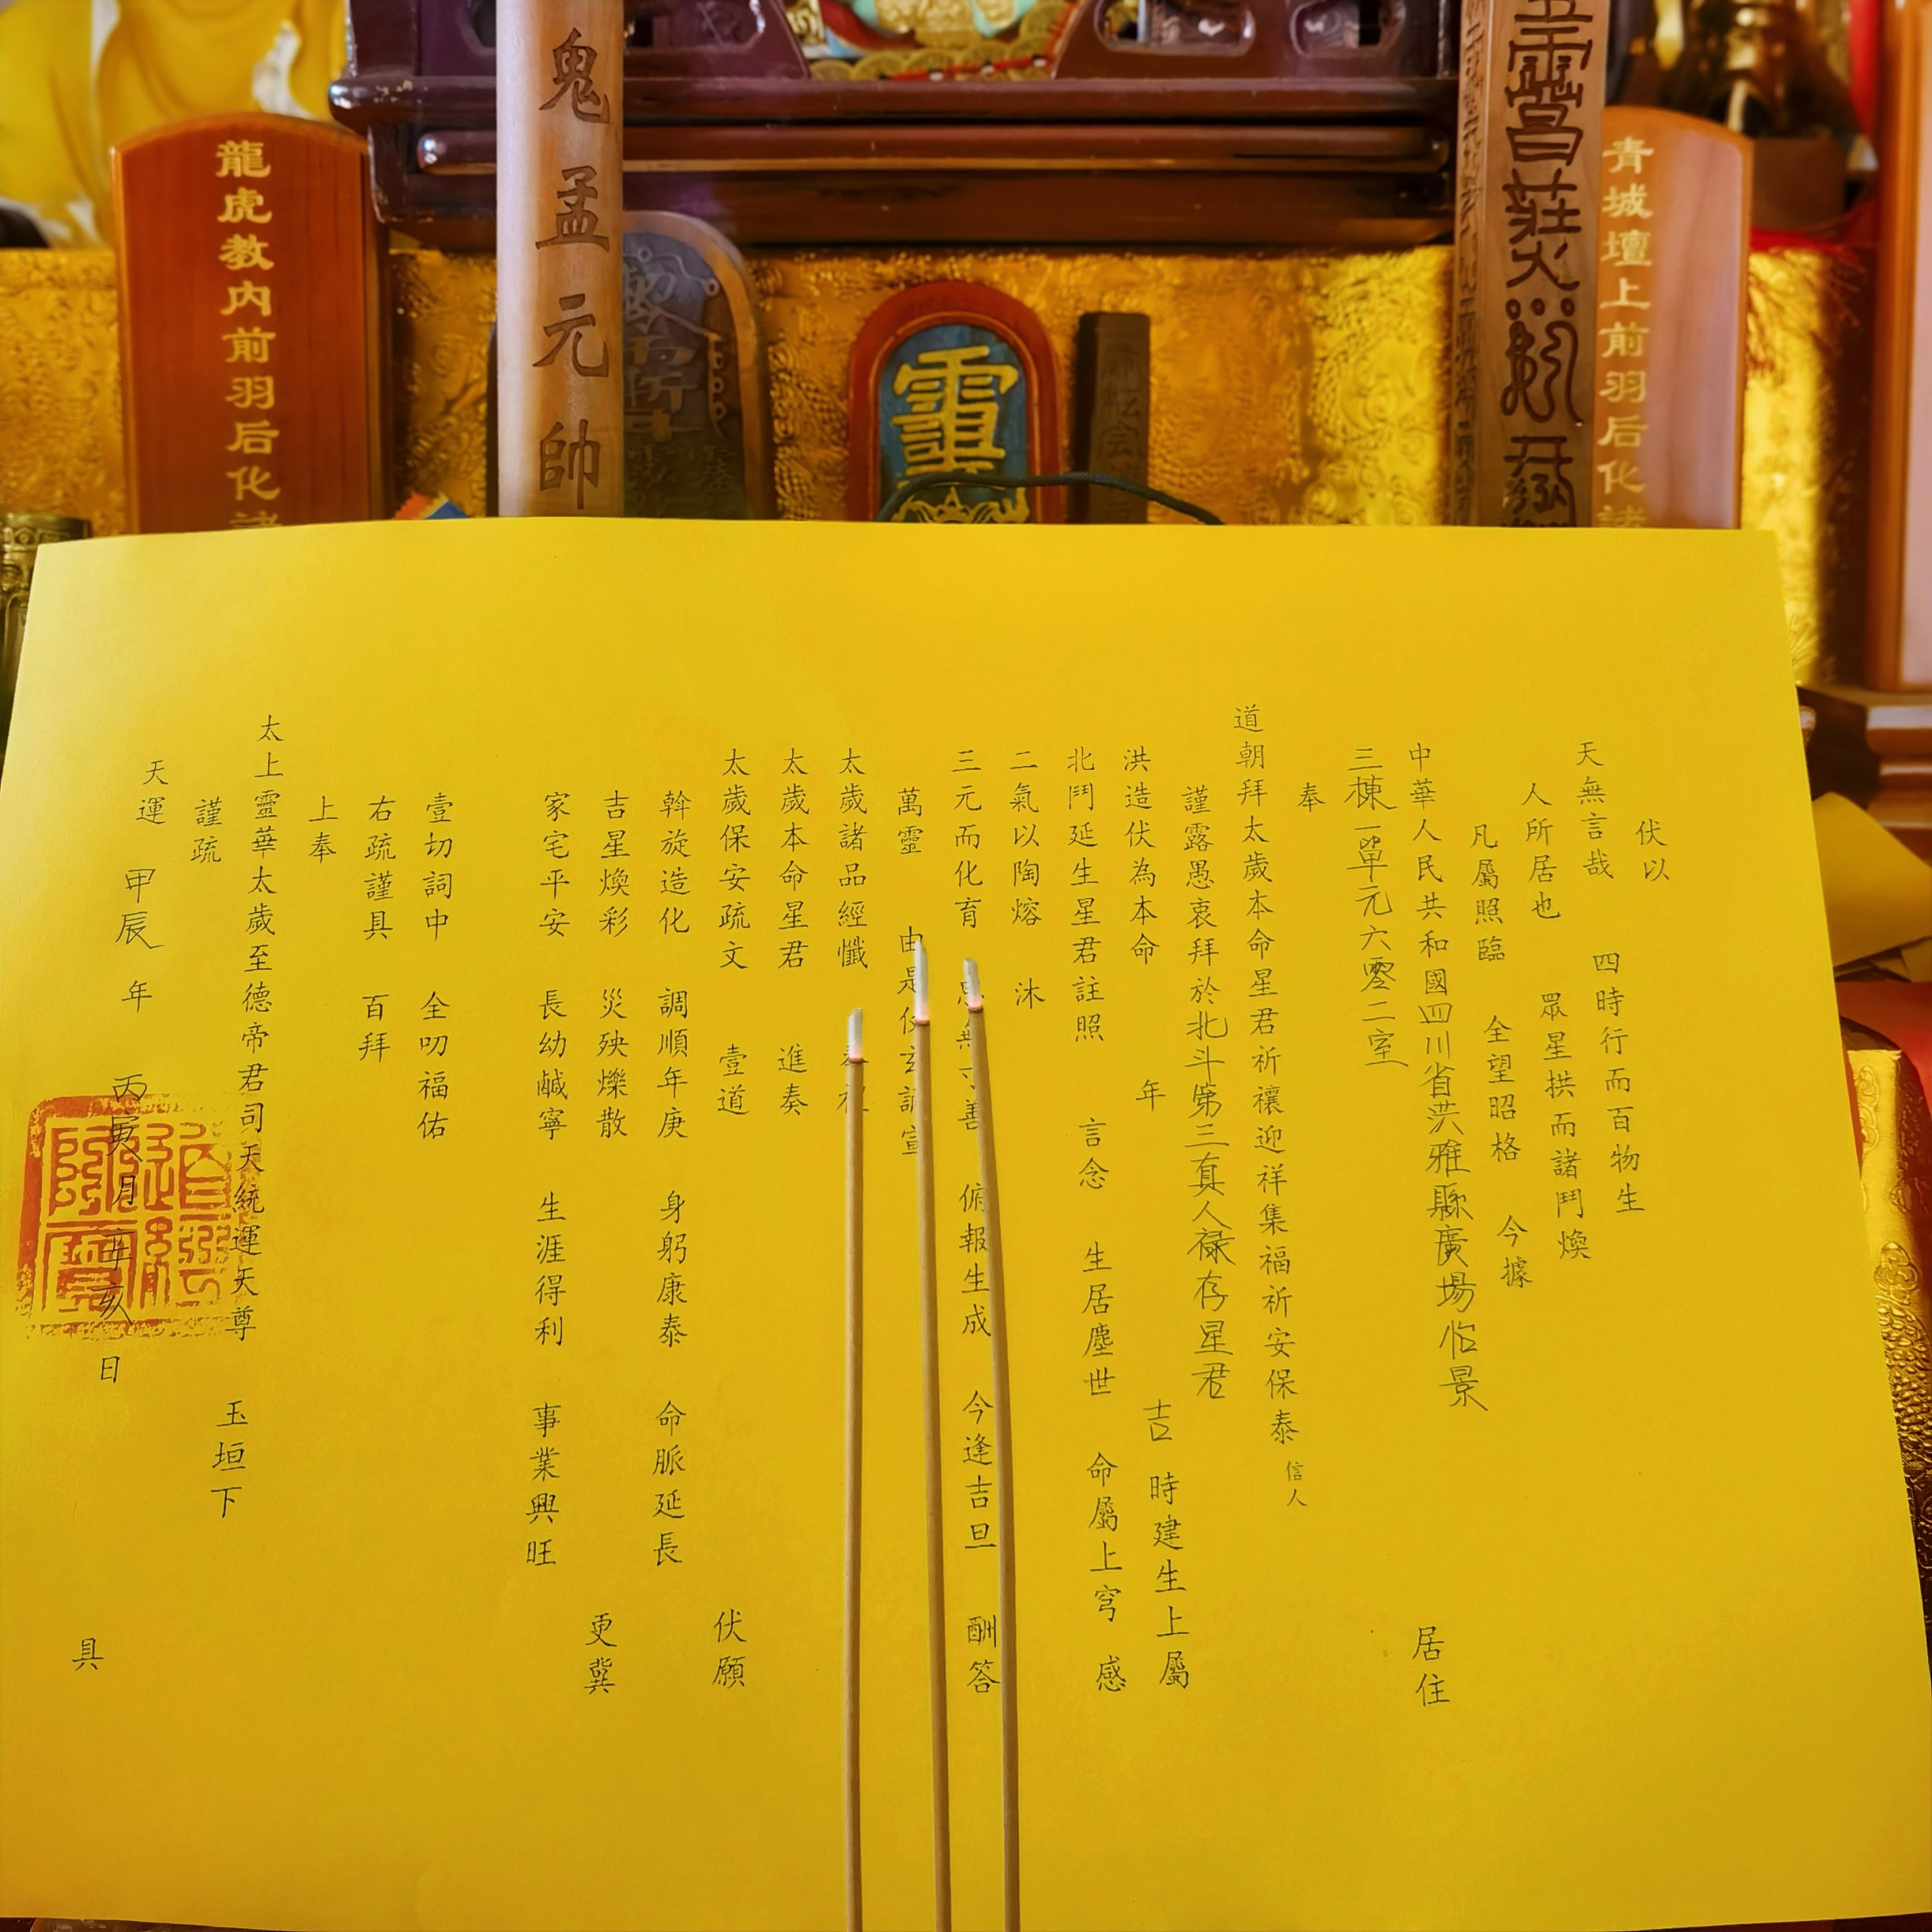 鬼孟元帥
龍虎教內前羽后化諸
青城壇上前羽后化諸
靈
伏以
天無言哉 四時行而百物生
人所居也 眾星拱而諸鬥煥
凡屬照臨 全望昭格 今據
中華人民共和國四川省洪雅縣廣場怡景 居住
三棟一單元六零二室
奉
道朝拜太歲本命星君祈禳迎祥集福祈安保泰信人
謹露愚衷拜於北斗第三真人祿存星君
洪造伏為本命 年 吉 時建生上屬
北鬥延生星君註照 言念 生居塵世 命屬上穹 感
二氣以陶熔 沐
三元而化育 善 俯報生成 今逢吉旦 酬答
萬靈 由是 玄 宣
太歲諸品經懺
太歲本命星君 進奏
太歲保安疏文 壹道 伏願
斡旋造化 調順年庚 身躬康泰 命脈延長
吉星煥彩 災殃爍散 更冀
家宅平安 長幼鹹寧 生涯得利 事業興旺
壹切詞中 全叨福佑
右疏謹具 百拜
上奉
太上靈華太歲至德帝君司天統運天尊 玉垣下
謹疏
天運 甲辰 年 丙寅 月 辛亥 日 具